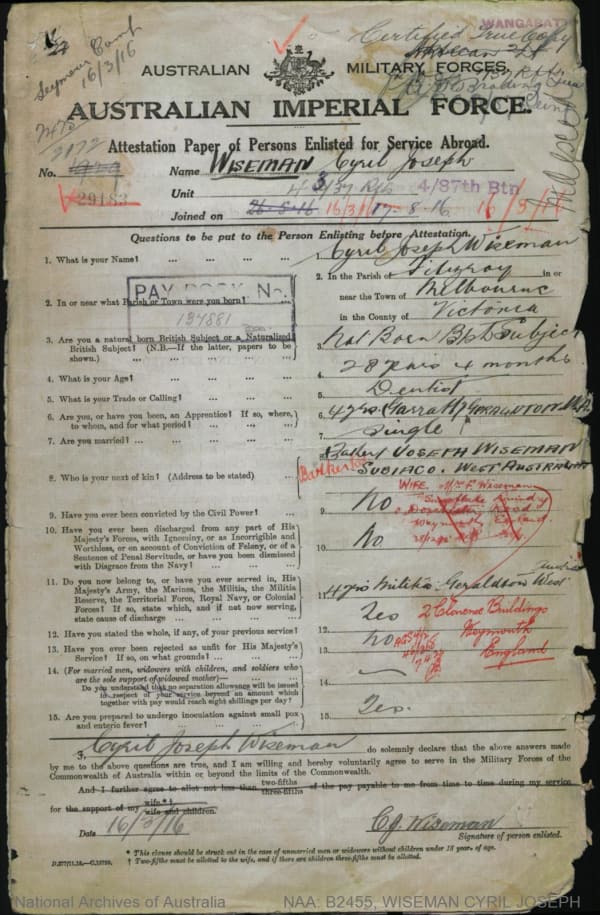 WANGARATT
Certified True Copy
Seymour Camp
16/3/16
AUSTRALIAN MILITARY FORCES.
AUSTRALIAN IMPERIAL FORCE.
2172
Attestation Paper of Persons Enlisted for Service Abroad.
No. 29183
Name WISEMAN Cyril Joseph
Unit 4/37 Rfts 4/37th Btn
Joined on 26-5-16 16/3/16 17-8-16 16/3/16
Questions to be put to the Person Enlisting before Attestation.
1. What is your Name? ... ... ... ...
1. Cyril Joseph Wiseman
2. In or near what Parish or Town were you born? ...
2. In the Parish of Fitzroy in or
near the Town of Melbourne
in the County of Victoria
PAY BOOK No.
137881
3. Are you a natural born British Subject or a Naturalized
British Subject? (N.B.—If the latter, papers to be
shown.) ... ... ... ... ...
3. Nat Born Bsh Subject
4. What is your Age? ... ... ... ...
4. 28 years 4 months
5. What is your Trade or Calling? ... ... ...
5. Dentist
6. Are you, or have you been, an Apprentice? If so, where,
to whom, and for what period? ... ... ...
6. 4 yrs (Garratt) GERALDTON W.A.
7. Are you married? ... ... ... ...
7. Single
8. Who is your next of kin? (Address to be stated) ...
8. (Father) JOSEPH WISEMAN
SUBIACO. WEST AUSTRALIA
WIFE. Mrs F. Wiseman
Dorchester Road
Weymouth England.
9. Have you ever been convicted by the Civil Power? ...
9. No
10. Have you ever been discharged from any part of His
Majesty's Forces, with Ignominy, or as Incorrigible and
Worthless, or on account of Conviction of Felony, or of a
Sentence of Penal Servitude, or have you been dismissed
with Disgrace from the Navy? ... ... ...
10. No
11. Do you now belong to, or have you ever served in, His
Majesty's Army, the Marines, the Militia, the Militia
Reserve, the Territorial Force, Royal Navy, or Colonial
Forces? If so, state which, and if not now serving,
state cause of discharge ... ... ... ...
11. 4 yrs Militia. Geraldton West
12. Have you stated the whole, if any, of your previous service?
12. Yes
2 Clarence Buildings
Weymouth
England
13. Have you ever been rejected as unfit for His Majesty's
Service? If so, on what grounds? ... ... ...
13. No
14. (For married men, widowers with children, and soldiers who
are the sole support of widowed mother)—
Do you understand that no separation allowance will be issued
in respect of your service beyond an amount which
together with pay would reach eight shillings per day?
14. —
15. Are you prepared to undergo inoculation against small pox
and enteric fever? ... ... ... ...
15. Yes.
I, Cyril Joseph Wiseman do solemnly declare that the above answers made
by me to the above questions are true, and I am willing and hereby voluntarily agree to serve in the Military Forces of the
Commonwealth of Australia within or beyond the limits of the Commonwealth.
And I further agree to allot not less than two-fifths three-fifths of the pay payable to me from time to time during my service
for the support of my wife*† wife and children.
Date 16/3/16
C.J. Wiseman
Signature of person enlisted.
* This clause should be struck out in the case of unmarried men or widowers without children under 18 year. of age.
† Two-fifths must be allotted to the wife, and if there are children three-fifths must be allotted.
National Archives of Australia
NAA: B2455, WISEMAN CYRIL JOSEPH